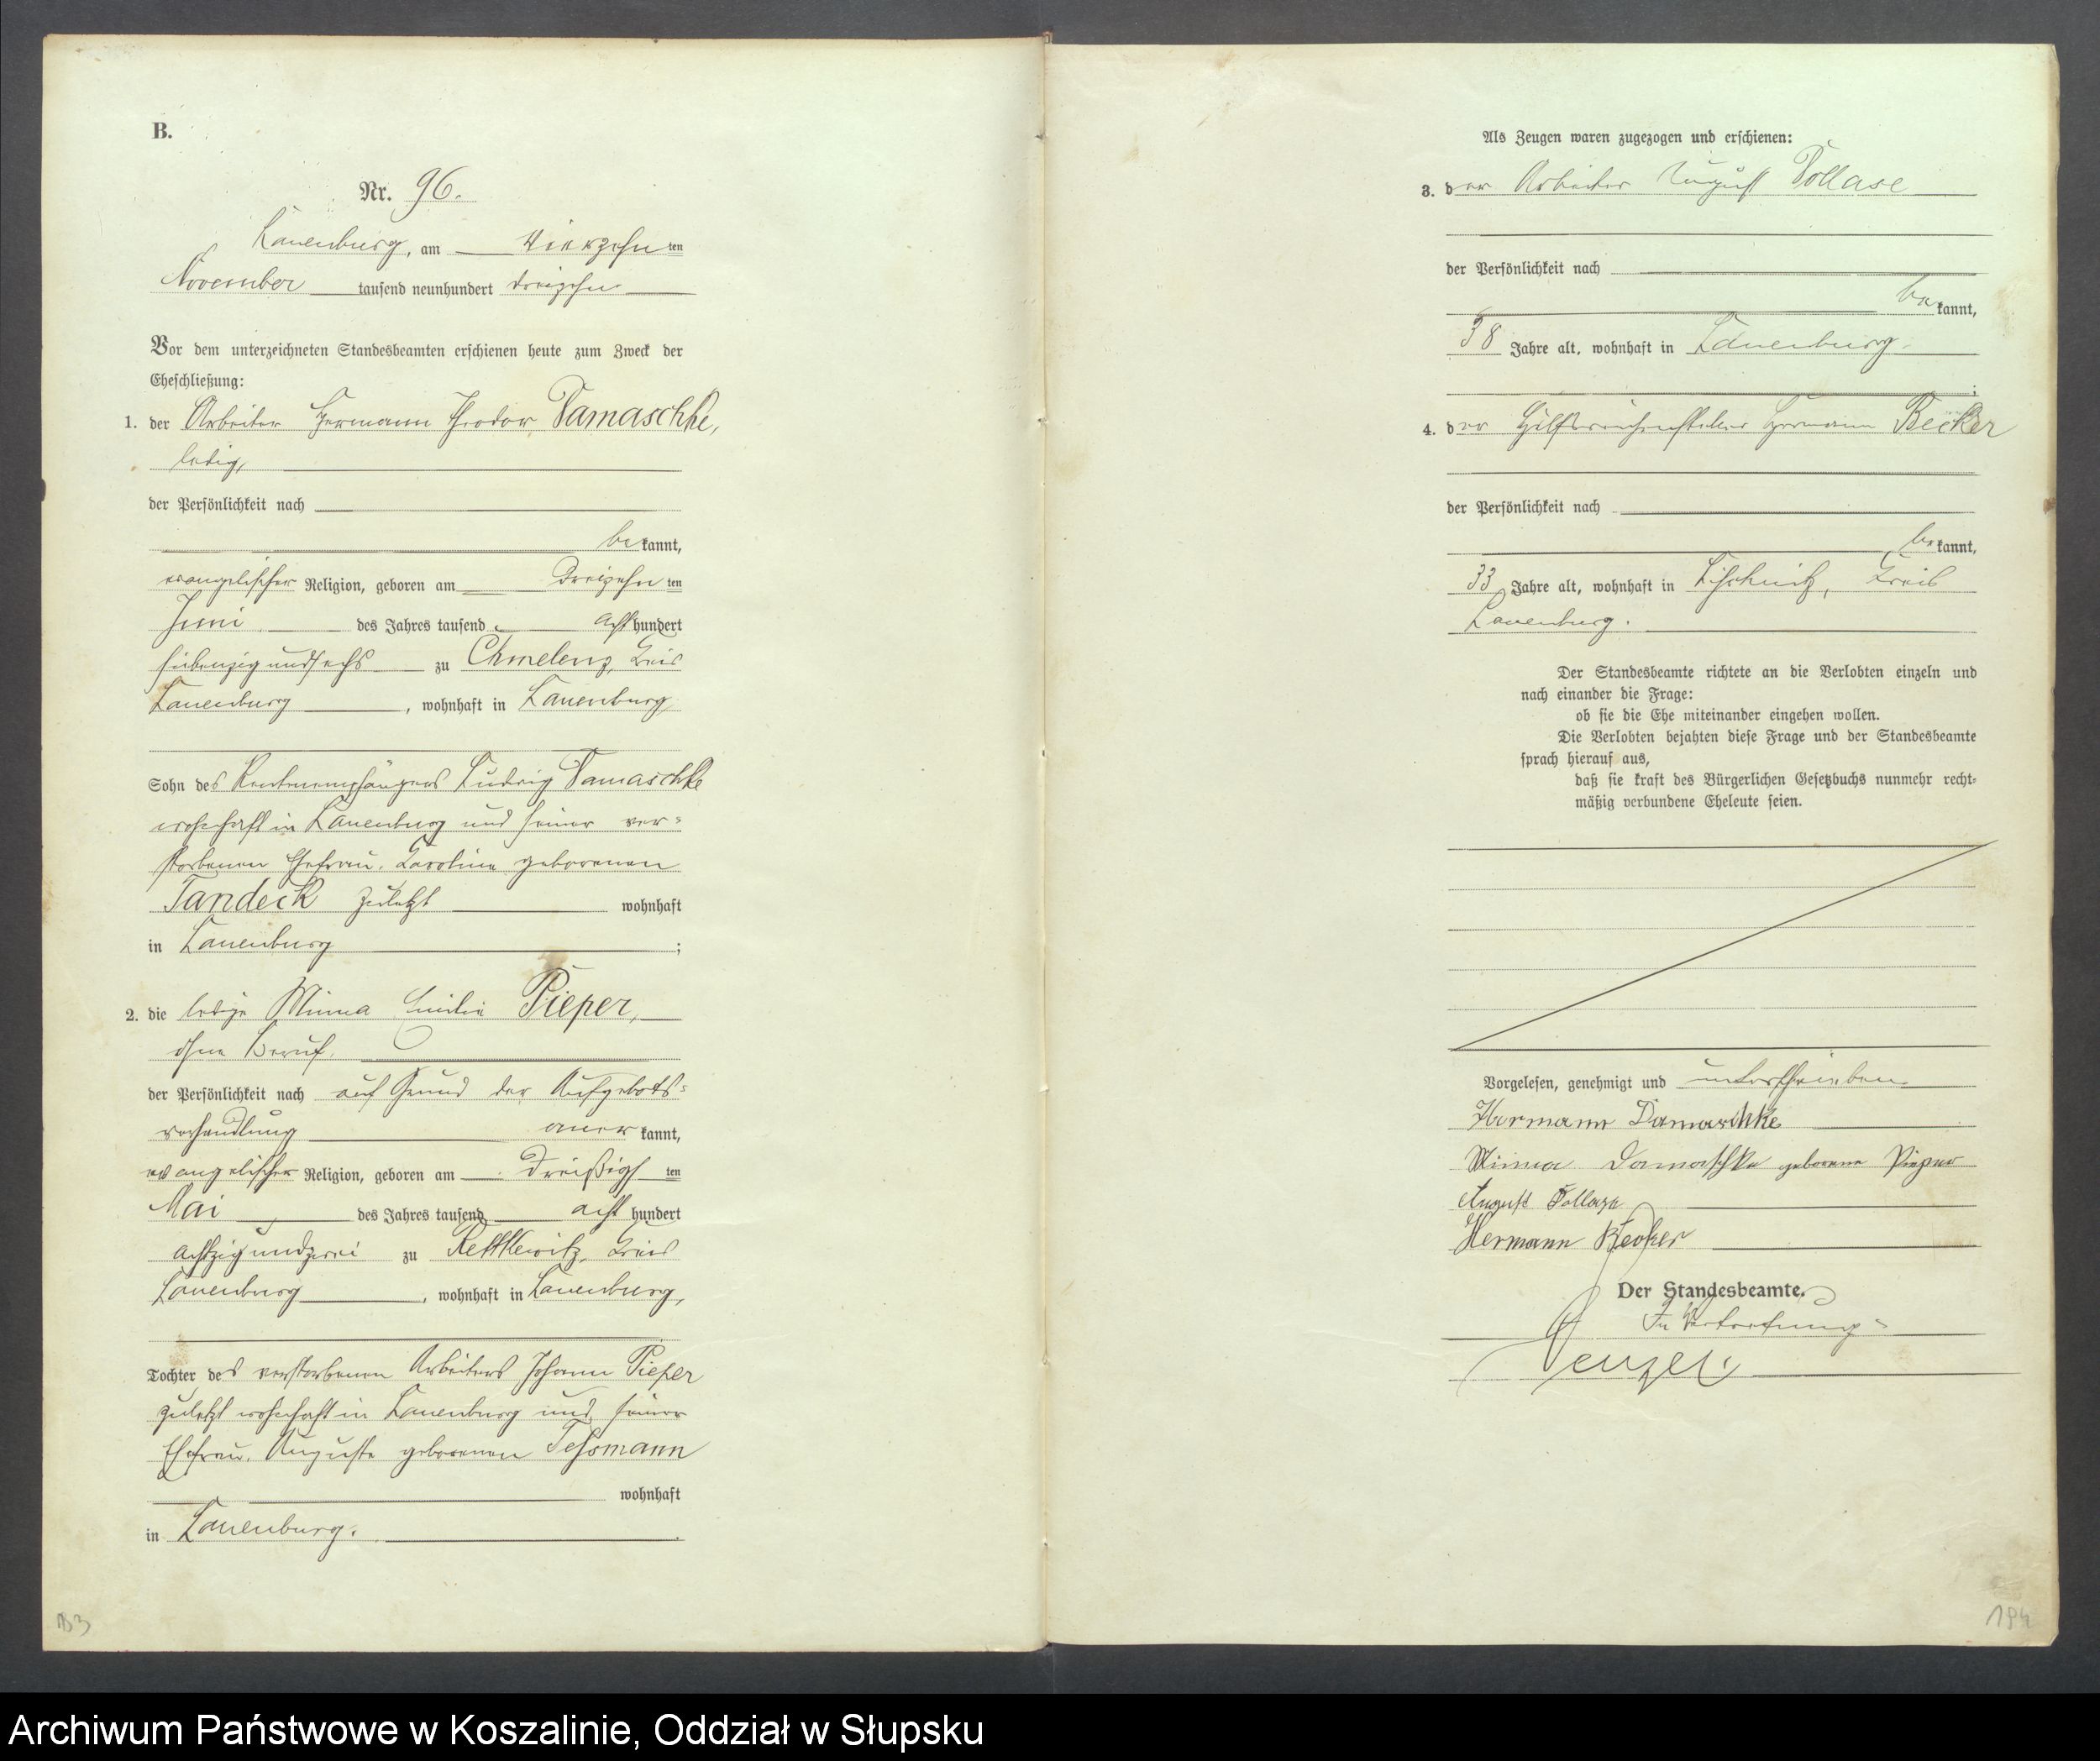 B.
Nr. 96.
Lauenburg, am vierzehnten
November tausend neunhundert dreizehn
Vor dem unterzeichneten Standesbeamten erschienen heute zum Zweck der
Eheschließung:
1. der Arbeiter Hermann Theodor Damaschke,
ledig,
der Persönlichkeit nach
bekannt,
evangelischer Religion, geboren am dreizehnten
Juni des Jahres tausend achthundert
siebenzig und sechs zu Chmelenz, Kreis
Lauenburg, wohnhaft in Lauenburg
Sohn des Rentenempfängers Ludwig Damaschke
wohnhaft in Lauenburg und seiner ver-
storbenen Ehefrau, Karoline geborenen
Tandeck zuletzt wohnhaft
in Lauenburg;
2. die ledige Minna Emilie Pieper,
ohne Beruf,
der Persönlichkeit nach auf Grund der Aufgebots-
verhandlung anerkannt,
evangelischer Religion, geboren am dreißigsten
Mai des Jahres tausend achthundert
achtzig und zwei zu Rettkewitz, Kreis
Lauenburg, wohnhaft in Lauenburg,
Tochter des verstorbenen Arbeiters Johann Pieper
zuletzt wohnhaft in Lauenburg und seiner
Ehefrau, Auguste geborenen Tessmann
wohnhaft
in Lauenburg.
193
Als Zeugen waren zugezogen und erschienen:
3. der Arbeiter August Pollase
der Persönlichkeit nach
bekannt,
38 Jahre alt, wohnhaft in Lauenburg.
;
4. der Hilfsweichensteller Hermann Becker
der Persönlichkeit nach
bekannt,
33 Jahre alt, wohnhaft in Kreis
Lauenburg.
Der Standesbeamte richtete an die Verlobten einzeln und
nach einander die Frage:
ob sie die Ehe miteinander eingehen wollen.
Die Verlobten bejahten diese Frage und der Standesbeamte
sprach hierauf aus,
daß sie kraft des Bürgerlichen Gesetzbuchs nunmehr recht-
mäßig verbundene Eheleute seien.
Vorgelesen, genehmigt und unterschrieben
Hermann Damaschke
Minna Damaschke geborene Pieper
August Pollase
Hermann Becker
Der Standesbeamte.
In Vertretung
194
Archiwum Państwowe w Koszalinie, Oddział w Słupsku